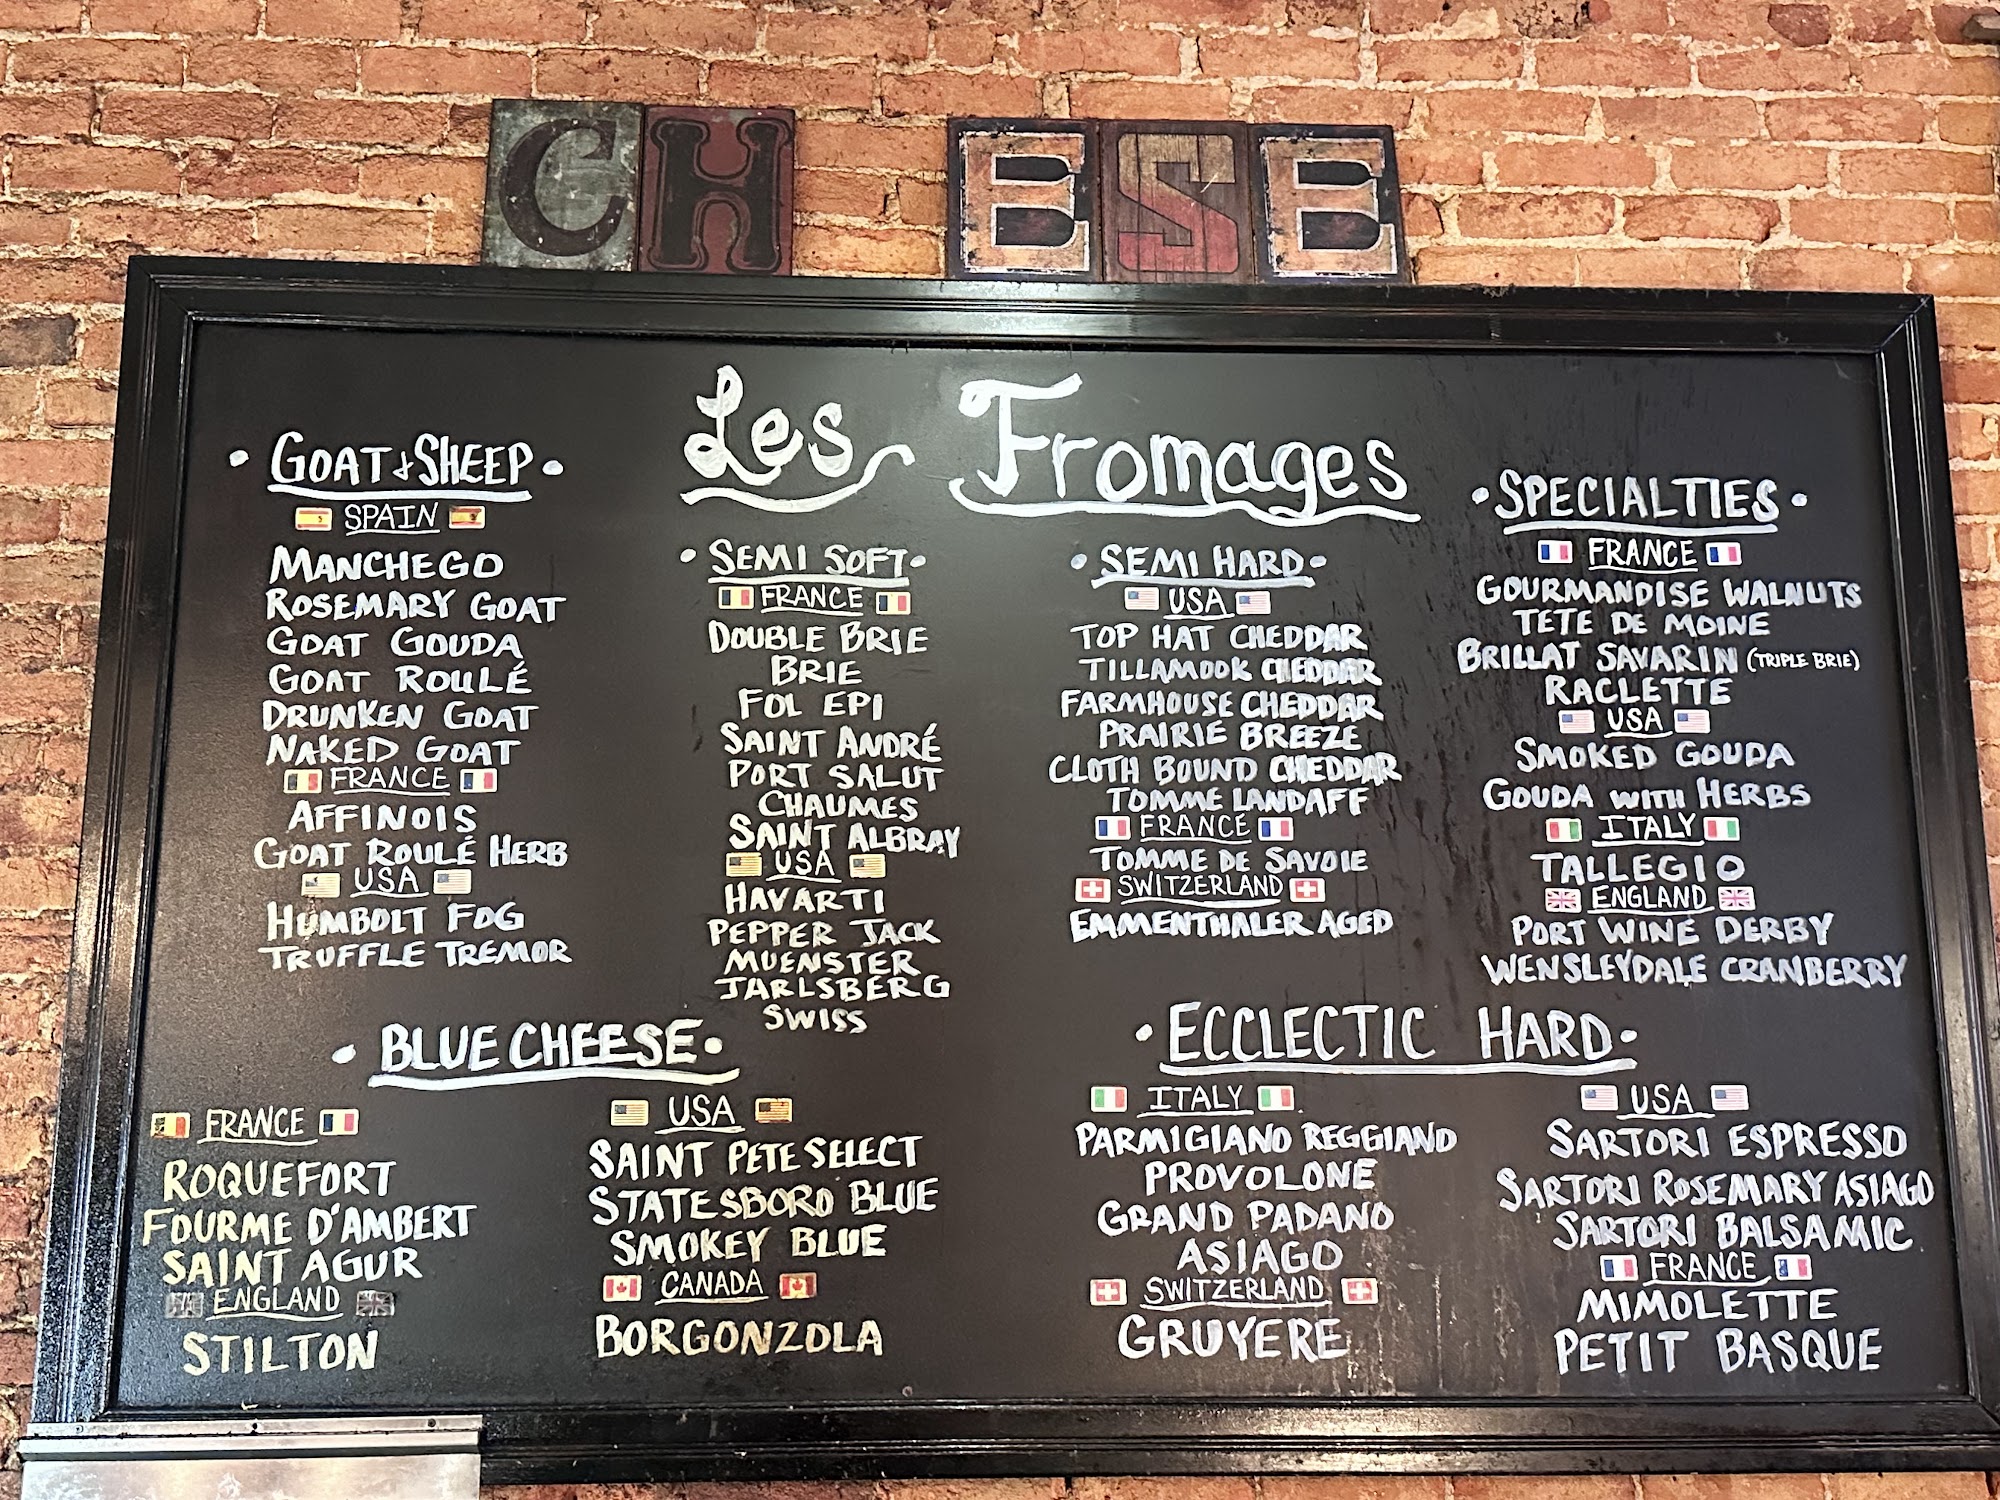 CH ESE
Les Fromages
• GOAT & SHEEP •
SPAIN
MANCHEGO
ROSEMARY GOAT
GOAT GOUDA
GOAT ROULÉ
DRUNKEN GOAT
NAKED GOAT
FRANCE
AFFINOIS
GOAT ROULÉ HERB
USA
HUMBOLT FOG
TRUFFLE TREMOR
• SEMI SOFT •
FRANCE
DOUBLE BRIE
BRIE
FOL EPI
SAINT ANDRÉ
PORT SALUT
CHAUMES
SAINT ALBRAY
USA
HAVARTI
PEPPER JACK
MUENSTER
JARLSBERG
SWISS
• SEMI HARD •
USA
TOP HAT CHEDDAR
TILLAMOOK CHEDDAR
FARMHOUSE CHEDDAR
PRAIRIE BREEZE
CLOTH BOUND CHEDDAR
TOMME LANDAFF
FRANCE
TOMME DE SAVOIE
SWITZERLAND
EMMENTHALER AGED
• SPECIALTIES •
FRANCE
GOURMANDISE WALNUTS
TETE DE MOINE
BRILLAT SAVARIN (TRIPLE BRIE)
RACLETTE
USA
SMOKED GOUDA
GOUDA WITH HERBS
ITALY
TALLEGIO
ENGLAND
PORT WINE DERBY
WENSLEYDALE CRANBERRY
• BLUE CHEESE •
FRANCE
ROQUEFORT
FOURME D'AMBERT
SAINT AGUR
ENGLAND
STILTON
USA
SAINT PETE SELECT
STATESBORO BLUE
SMOKEY BLUE
CANADA
BORGONZOLA
• ECCLECTIC HARD •
ITALY
PARMIGIANO REGGIANO
PROVOLONE
GRAND PADANO
ASIAGO
SWITZERLAND
GRUYERE
USA
SARTORI ESPRESSO
SARTORI ROSEMARY ASIAGO
SARTORI BALSAMIC
FRANCE
MIMOLETTE
PETIT BASQUE